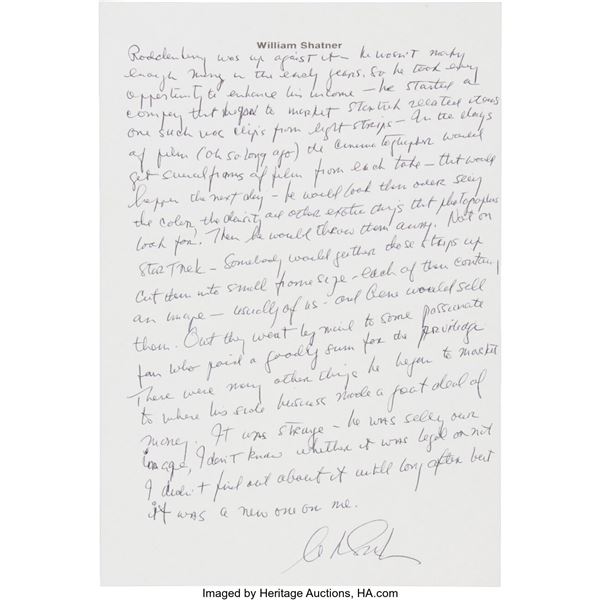 William Shatner
Roddenberry was up against it he wasn't making
enough money in the early years. So he took every
opportunity to enhance his income - he started a
company that began to market Startrek related items
one such was clips from light strips - In the days
of film (oh so long ago) the cinematographer would
get several frames of film from each take - that would
happen the next day - he would look them over seeing
the color, the density and other exotic things that photographers
look for. Then he would throw them away. Not on
StarTrek - Somebody would gather these strips up
cut them into small frame size - each of them containing
an image - usually of us - and Gene would sell
them. Out they went by mail to some passionate
fan who paid a goodly sum for the priviledge
There were many other things he began to market
to where his side business made a great deal of
money. It was strange - he was selling our
image, I don't know whether it was legal or not
I didn't find out about it until long after but
it was a new one on me.
Imaged by Heritage Auctions, HA.com